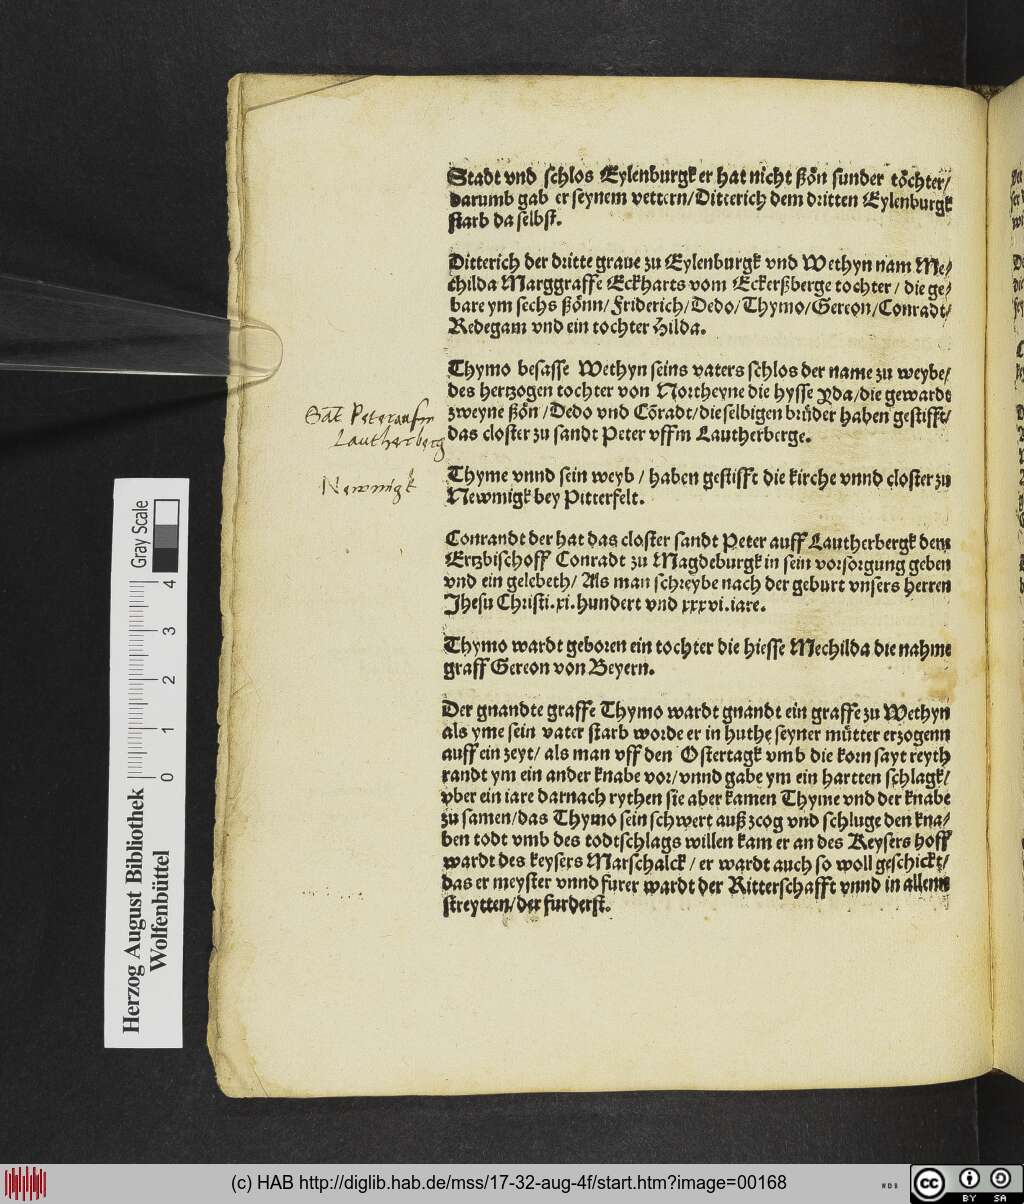 Stadt vnd schlos Eylenburgk er hat nicht ßön sunder töchter/
darumb gab er seynem vettern/Ditterich dem dritten Eylenburgk
starb da selbst.
Ditterich der dritte graue zu Eylenburgk vnd Wethyn nam Me/
childa Marggraffe Eckharts vom Eckerßberge tochter/ die ge/
bare ym sechs ßönn/Friderich/Dedo/Thymo/Gereon/Conradt/
Redegam vnd ein tochter Hilda.
Thymo besasse Wethyn seins vaters schlos der name zu weybe/
des hertzogen tochter von Northeyne die hysse Yda/die gewardt
zweyne ßön/Dedo vnd Cōradt/dieselbigen brüder haben gestifft/
das closter zu sandt Peter vffm Lautherberge.
Sāt Peter aufm
Lautherberg
Thyme vnnd sein weyb/ haben gestifft die kirche vnnd closter zu
Newmigk bey Pitterfelt.
Newmigk
Conrandt der hat das closter sandt Peter auff Lautherbergk dem
Ertzbischoff Conradt zu Magdeburgk in sein vorsorgung geben
vnd ein gelebeth/ Als man schreybe nach der geburt vnsers herren
Jhesu Christi.xi.hundert vnd xxxvi.iare.
Thymo wardt geboren ein tochter die hiesse Mechilda die nahme
graff Gereon von Beyern.
Der gnandte graffe Thymo wardt gnandt ein graffe zu Wethyn
als yme sein vater starb worde er in huthe seyner mütter erzogenn
auff ein zeyt/ als man vff den Ostertagk vmb die korn sayt reyth
randt ym ein ander knabe vor/vnnd gabe ym ein hartten schlagk/
vber ein iare darnach rythen sie aber kamen Thyme vnd der knabe
zu samen/das Thymo sein schwert auß zcog vnd schluge den kna/
ben todt vmb des todtschlags willen kam er an des Keysers hoff
wardt des keysers Marschalck/ er wardt auch so woll geschickt/
das er meyster vnnd furer wardt der Ritterschafft vnnd in allenn
streytten/der furderst.
Herzog August Bibliothek
Wolfenbüttel
0 1 2 3 4
Gray Scale
(c) HAB http://diglib.hab.de/mss/17-32-aug-4f/start.htm?image=00168
cc BY SA